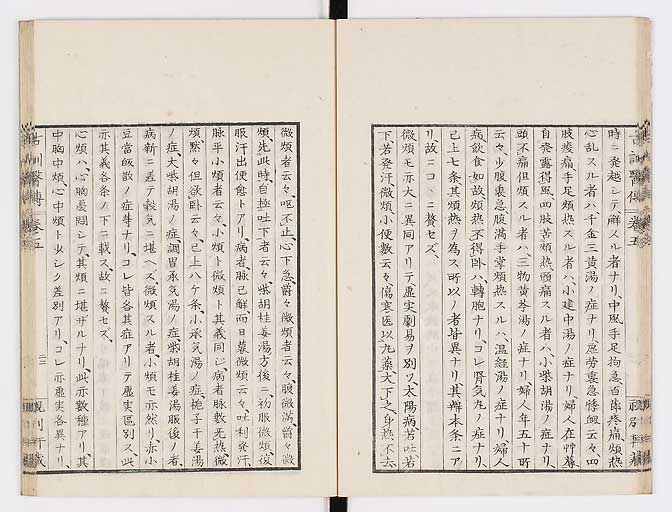 時ニ発越シテ解スル者ナリ、中風手足拘急百節疼痛煩熱
心乱スル者ハ千金三黄湯ノ症ナリ、虚労裏急悸衂云々四
肢痠痛手足煩熱スル者ハ小建中湯ノ症ナリ、婦人在草蓐
自発露得風四肢苦煩熱頭痛スル者ハ、小柴胡湯ノ症ナリ、
頭不痛但煩スル者ハ三物黄芩湯ノ症ナリ、婦人年五十所
云々少腹裏急腹満手掌煩熱スルハ、温経湯ノ症ナリ、婦人
病飲食如故煩熱不得卧ハ、轉胞ナリ、コレ腎気丸ノ症ナリ、
已上七条其煩熱ヲ為ス所以ノ者皆異ナリ、其辨本条ニア
リ、故ニコヽニ贅セズ、
微煩モ亦大ニ異同アリテ虚実劇易ヲ別ツ、太陽病若吐若
下若発汗、微煩小便数云々、傷寒医以丸薬大下之身熱不去
微煩者云々、嘔不止心下急欝々微煩者云々、腹微満欝々微
煩、先此時自極吐下者云々、柴胡桂姜湯方後ニ初服微煩復
服汗出便愈トアリ、病者脉已解而日暮微煩云々、吐利発汗
脉平小煩者云々、小煩ト微煩ト其義同シ、病者脉数無熱微
煩黙々但欲卧云々、已上八ケ条、小承気湯ノ症梔子干姜湯
ノ症大柴胡湯ノ症調胃承気湯ノ症柴胡桂姜湯服後ノ者、
病新ニ差テ穀気ニ堪ヘズ微煩スル者、小煩モ亦然リ、赤小
豆當皈散ノ症等ナリ、コレ皆各其症アリテ虚実区別ス、此
亦其義各条ノ下ニ載ス故ニ贅セズ、
心煩ハ、心胸憂悶シテ、其煩ニ堪ザルナリ、此亦数種アリ、其
中胸中煩心中煩ト少シク差別アリ、コレ亦虚実各異ナリ、